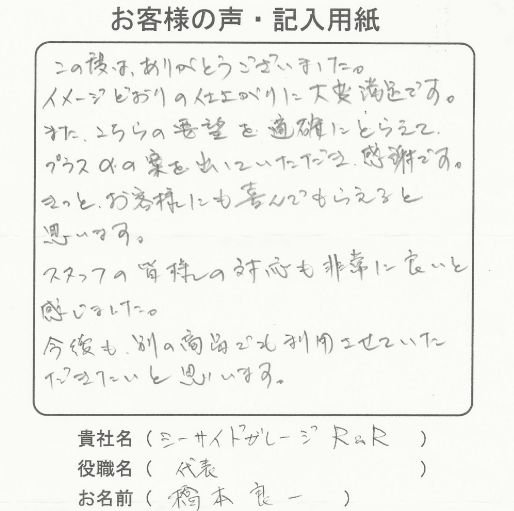 お客様の声・記入用紙
この度は、ありがとうございました。
イメージどおりの仕上がりに大変満足です。
また、こちらの要望を適確にとらえて、
プラスαの案を出していただき、感謝です。
きっと、お客様にも喜んでもらえると
思います。
スタッフの皆様の対応も非常に良いと
感じました。
今後も、別の商品でも利用させていた
だきたいと思います。
貴社名 ( シーサイドガレージ R&R )
役職名 ( 代表 )
お名前 ( 橋本良一 )